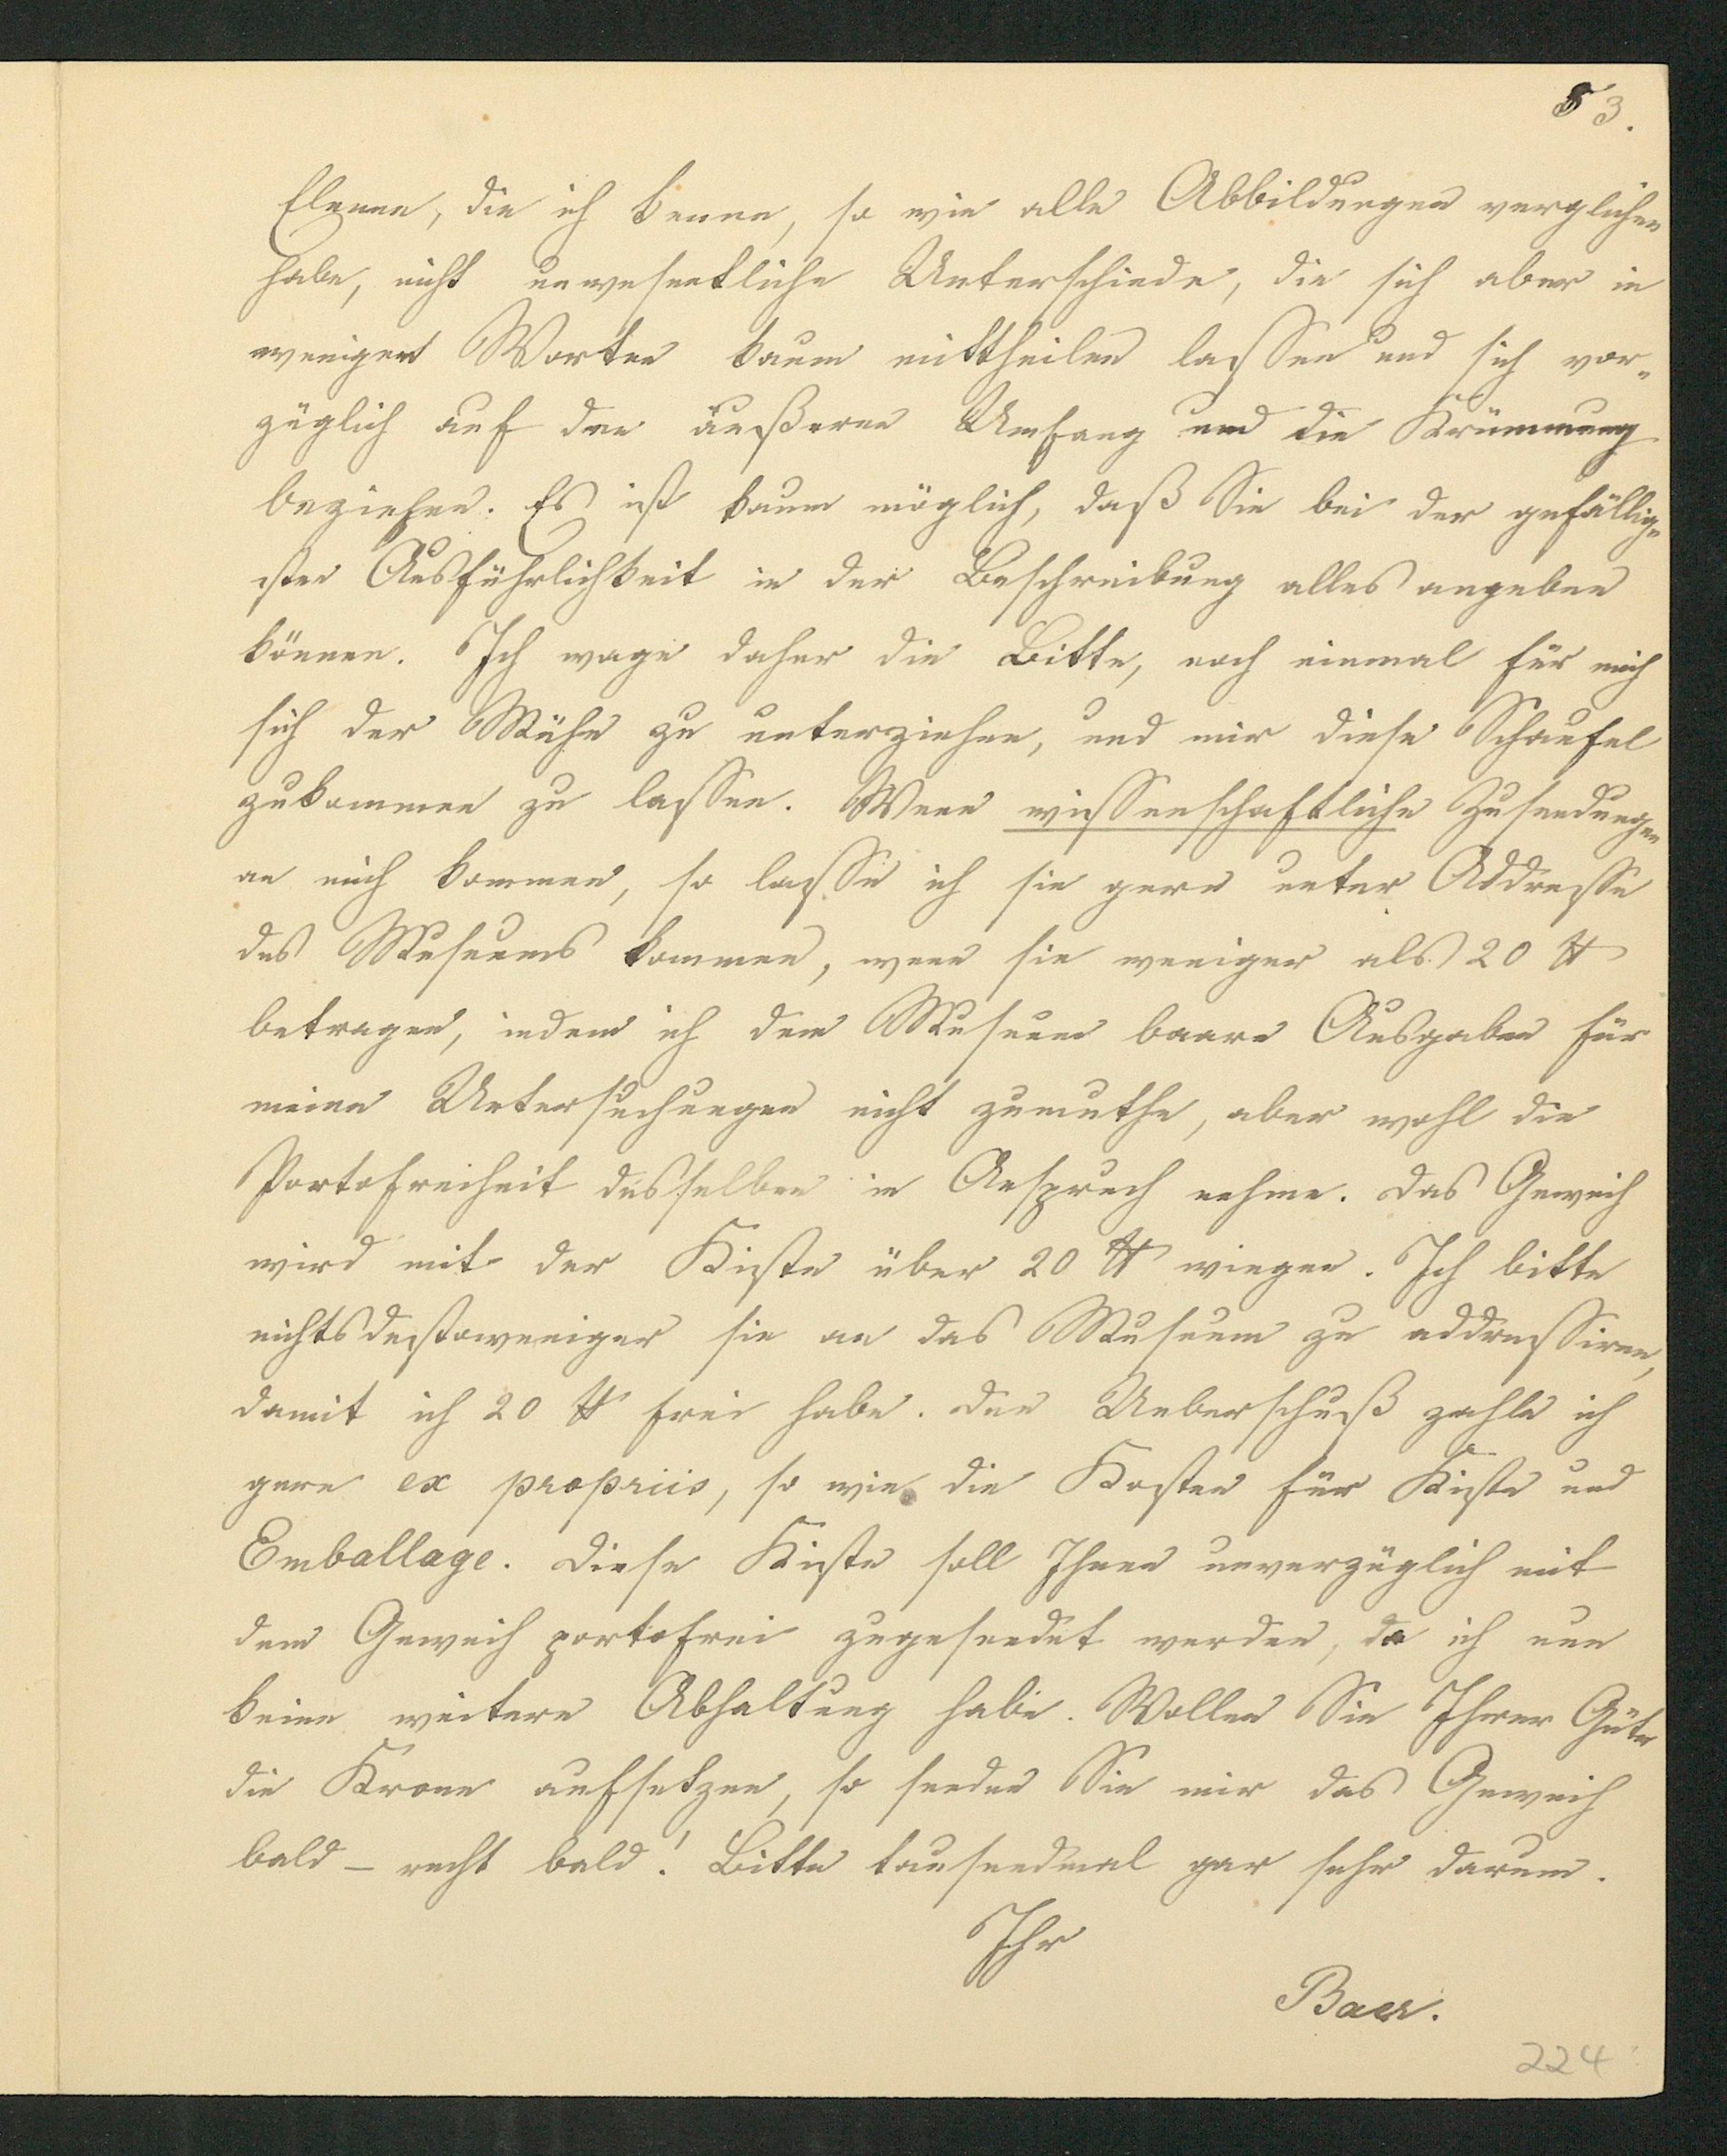 53.
Elenne, die ich kenne, so wie alle Abbildungen verglichen
habe, nicht unwesentliche Unterschiede, die sich aber in
wenigen Worten kaum mittheilen lassen und sich vor-
züglich auf den äußeren Umfang und die Krümmung
beziehen. Es ist kaum möglich, daß Sie bei der gefällig-
sten Ausführlichkeit in der Beschreibung alles angeben
können. Ich wage daher die Bitte, noch einmal für mich
sich der Mühe zu unterziehen, und mir diese Schaufel
zukommen zu lassen. Wenn wissenschaftliche Zusendungen
an mich kommen, so lasse ich sie gern unter Addresse
des Museums kommen, wenn sie weniger als 20 ℔
betragen, indem ich dem Museum baare Ausgaben für
meine Untersuchungen nicht zumuthe, aber wohl die
Portofreiheit desselben in Anspruch nehme. Das Geweih
wird mit der Kiste über 20 ℔ wiegen. Ich bitte
nichtsdestoweniger sie an das Museum zu addressiren,
damit ich 20 ℔ frei habe. Den Ueberschuß zahle ich
gern ex propriis, so wie die Kosten für Kiste und
Emballage. Diese Kiste soll Ihnen unverzüglich mit
dem Geweih portofrei zugesendet werden, da ich nun
keine weitere Abhaltung habe. Wollen Sie Ihrer Güte
die Krone aufsetzen, so senden Sie mir das Geweih
bald – recht bald! Bitte tausendmal gar sehr darum.
Ihr
Baer.
224